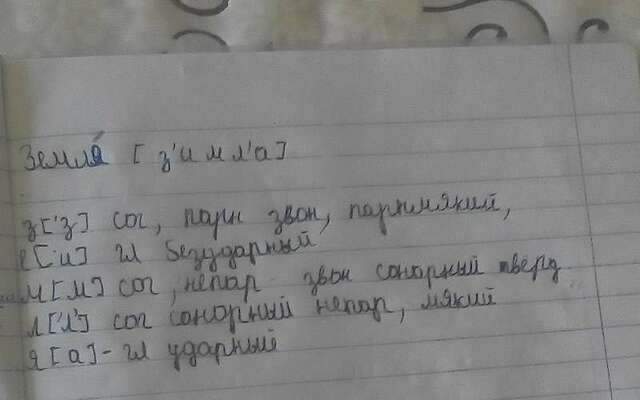 Земля́ [з'имл'а]
з['з] сог, парн звон, парнмякий,
е[и] гл безударный
м[м] сог, непар звон сонорный тверд
л['л'] сог сонорный непар, мякий
я[а]-гл ударный